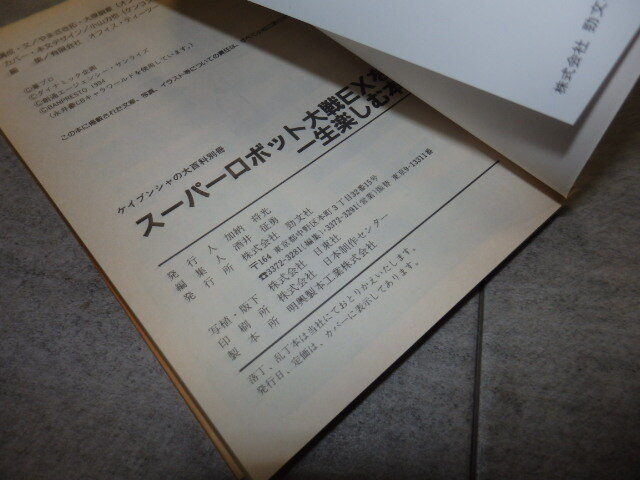 構成・文／やまざき拓・大原朗華(オ
カバー・本文デザイン／小山力也(ケンコ
編　集／有限会社　オフィス・ティーツー
©藤プロ
©ダイナミック企画
©創通エージェンシー・サンライズ
©BANPRESTO 1994
(永井豪CBキャラワールドを使用しています。)
この本に掲載された文章、写真、イラスト等についての責任は、
ケイブンシャの大百科別冊
スーパーロボット大戦EXを
一生楽しむ本
発行人　加納　将光
編集人　酒井　征勇
発行所　株式会社　勁文社
〒164　東京都中野区本町3丁目32番15号
☎3372-3281(編集)・3372-3291(営業)振替 東京9-13311番
写植・版下　株式会社　日東社
印刷所　株式会社　日本制作センター
製本所　明興製本工業株式会社
落丁、乱丁本は当社にておとりかえいたします。
発行日、定価は、カバーに表示してあります。
株式会社 勁文